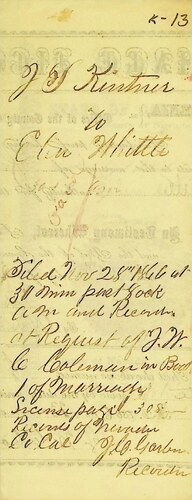 K-13
J H Kintner
to
Eliza Whittle
Filed Nov 28th 1866 at
30 min past 9 ock
A M and Record
at Request of J. W.
C Coleman in Book
1 of Marriage
License page 308
Records of
Co Cal
Recorder